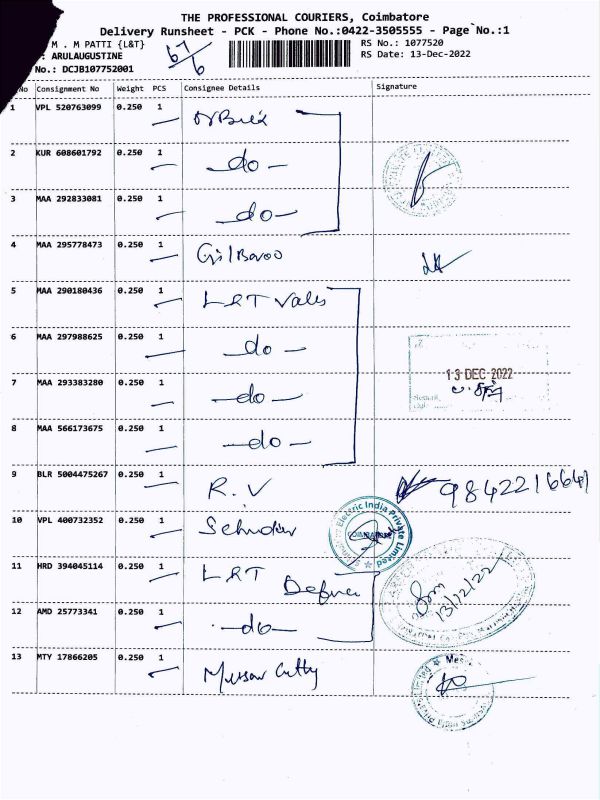 THE PROFESSIONAL COURIERS, Coimbatore
Delivery Runsheet - PCK - Phone No.:0422-3505555 - Page No.:1
M . M PATTI {L&T} 67/6 RS No.: 1077520
: ARULAUGUSTINE RS Date: 13-Dec-2022
No.: DCJB107752001
No Consignment No Weight PCS Consignee Details Signature
1 VPL 520763099 0.250 1
2 KUR 608601792 0.250 1 -do-
3 MAA 292833081 0.250 1 -do-
4 MAA 295778473 0.250 1
5 MAA 290180436 0.250 1 L&T Valves
6 MAA 297988625 0.250 1 -do-
13 DEC 2022
7 MAA 293383280 0.250 1 -do-
8 MAA 566173675 0.250 1 -do-
9 BLR 5004475267 0.250 1 R.V 9842216641
Electric India Private Limited
10 VPL 400732352 0.250 1
COIMBATORE
11 HRD 394045114 0.250 1 L&T Defence
13/12/22
12 AMD 25773341 0.250 1 -do-
13 MTY 17866205 0.250 1